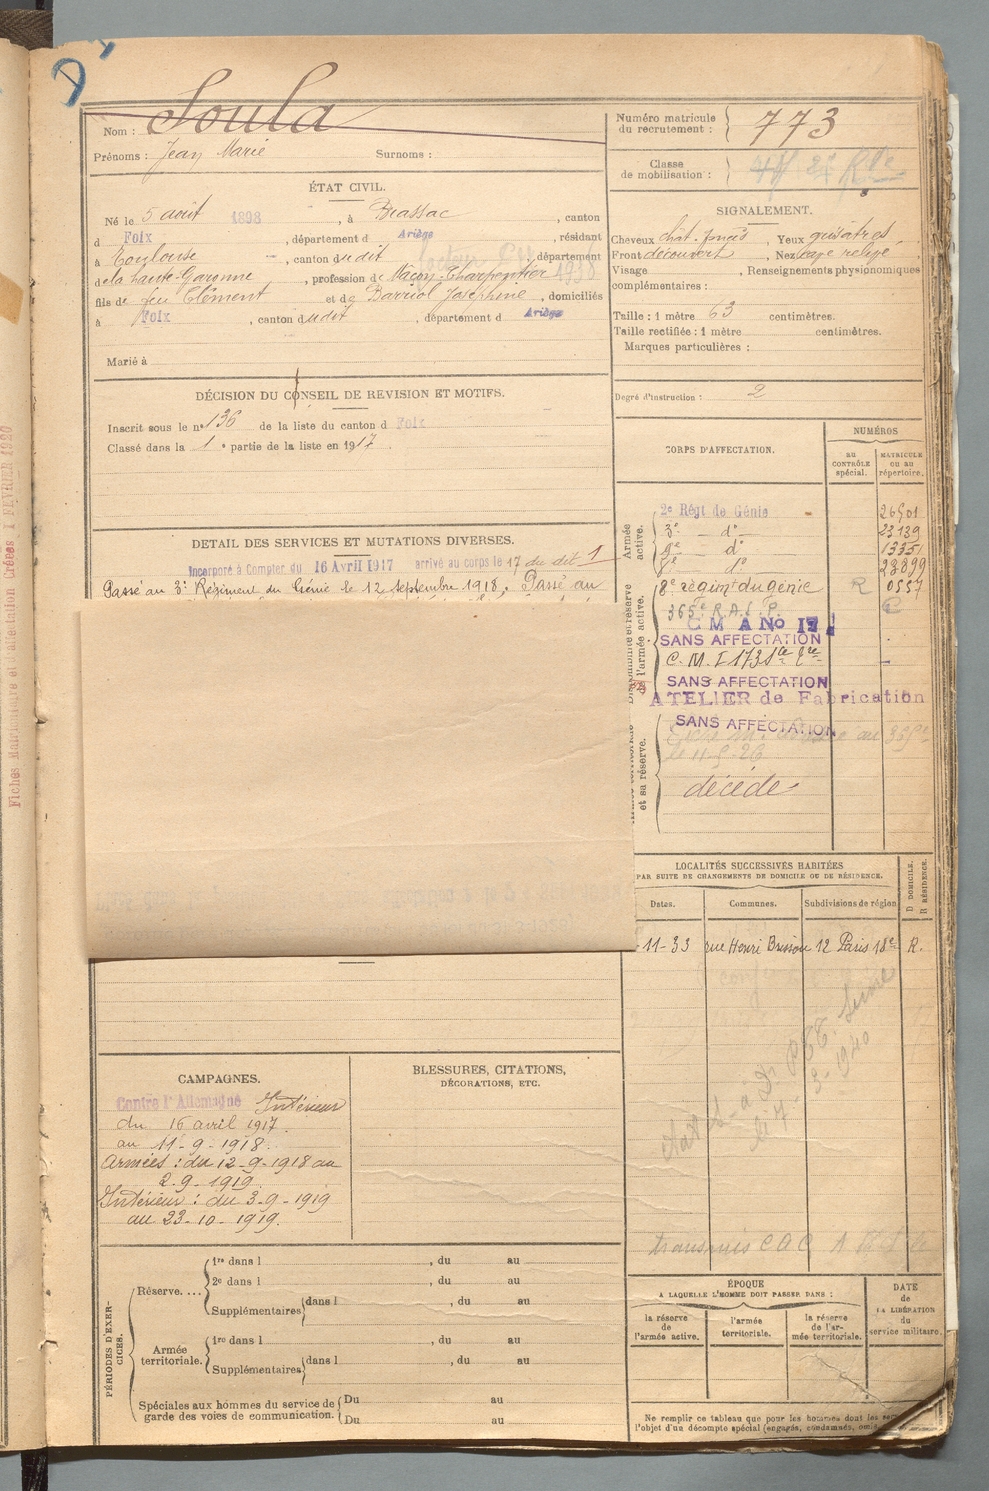 Nom : Soula
Prénoms : Jean Marie Surnoms :
Numéro matricule du recrutement : 773
Classe de mobilisation :
ÉTAT CIVIL.
Né le 5 août 1898, à Brassac, canton
d Foix, département d Ariège, résidant
à Toulouse, canton dudit, département
de la haute-Garonne, profession de Maçon-Charpentier
fils de feu Clément et de Barriol Joséphine, domiciliés
à Foix, canton dudit, département d Ariège
Marié à
SIGNALEMENT.
Cheveux chât. foncés, Yeux grisatres,
Front découvert, Nez
Visage , Renseignements physionomiques
complémentaires :
Taille : 1 mètre 63 centimètres.
Taille rectifiée : 1 mètre centimètres.
Marques particulières :
Degré d'instruction : 2
DÉCISION DU CONSEIL DE REVISION ET MOTIFS.
Inscrit sous le n° 136 de la liste du canton d Foix
Classé dans la 1e partie de la liste en 1917
DÉTAIL DES SERVICES ET MUTATIONS DIVERSES.
Incorporé à Compter du 16 Avril 1917 arrivé au corps le 17 du dit 1
Passé au 3e Régiment du Génie le 12 septembre 1918. Passé au
CORPS D'AFFECTATION.
NUMÉROS
au CONTRÔLE spécial.
MATRICULE ou au répertoire.
Armée active.
2e Régt de Génie 26501
3e d° 23139
9e d° 13351
8e d° 28899
8e régimt du génie R 0557
365e R.A.L.P.
C M A No 17
SANS AFFECTATION
C.M.I 173
SANS AFFECTATION
ATELIER de Fabrication
SANS AFFECTATION
le 11-5-26
décédé
et sa réserve.
LOCALITÉS SUCCESSIVES HABITÉES
PAR SUITE DE CHANGEMENTS DE DOMICILE OU DE RÉSIDENCE.
Dates. Communes. Subdivisions de région
D DOMICILE.
R RÉSIDENCE.
-11-33 rue Henri Brisson 12 Paris 18e R.
3-1940
transmis C A C
CAMPAGNES.
Contre l'Allemagne Intérieur
du 16 avril 1917
au 11-9-1918.
Armées : du 12-9-1918 au
2-9-1919.
Intérieur : du 3-9-1919
au 23-10-1919.
BLESSURES, CITATIONS,
DÉCORATIONS, ETC.
PÉRIODES D'EXERCICES.
Réserve....
1re dans l , du au
2e dans l , du au
Supplémentaires dans l , du au
Armée territoriale.
1re dans l , du au
Supplémentaires dans l , du au
Spéciales aux hommes du service de garde des voies de communication.
Du au
Du au
ÉPOQUE
A LAQUELLE L'HOMME DOIT PASSER DANS :
la réserve de l'armée active.
l'armée territoriale.
la réserve de l'armée territoriale.
DATE de LA LIBÉRATION du service militaire.
Ne remplir ce tableau que pour les hommes dont les
l'objet d'un décompte spécial (engagés, condamnés,